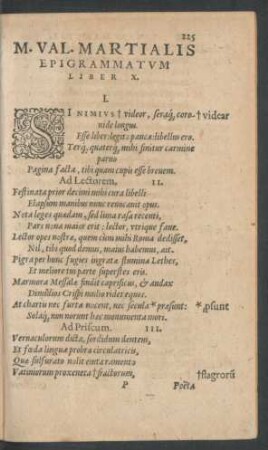 225
M. VAL. MARTIALIS
EPIGRAMMATVM
LIBER X.
I.
SI NIMIVS † videor, seraq́, coro- † videar
nide longus
Esse liber: legito pauca: libellus ero.
Terq́, quaterq́, mihi finitur carmine
paruo
Pagina: facta, tibi quam cupis esse breuem.
Ad Lectorem. II.
Festinata prior decimi mihi cura libelli
Elapsum manibus nunc reuocauit opus.
Nota leges quædam, sed lima rasa recenti,
Pars noua maior erit: lector, vtrique faue.
Lector opes nostræ, quem cùm mihi Roma dedisset,
Nil, tibi quod demus, maius habemus, ait.
Pigra per hunc fugies ingratæ flumina Lethes,
Et meliore tui parte superstes eris.
Marmora Messalæ findit caprificus, & audax
Dimidios Crispi mulio ridet equos.
At chartis nec furta nocent, nec secula * præsunt: * ꝓsunt
Solaq́, non norunt hæc monumenta mori.
Ad Priscum. III.
Vernaculorum dicta, sordidum dentem,
Et fœda linguæ probra circulatricis,
Quæ sulfurato nolit emta ramento
Vatiniorum proxeneta † fractorum, † flagrorū
P Poëta